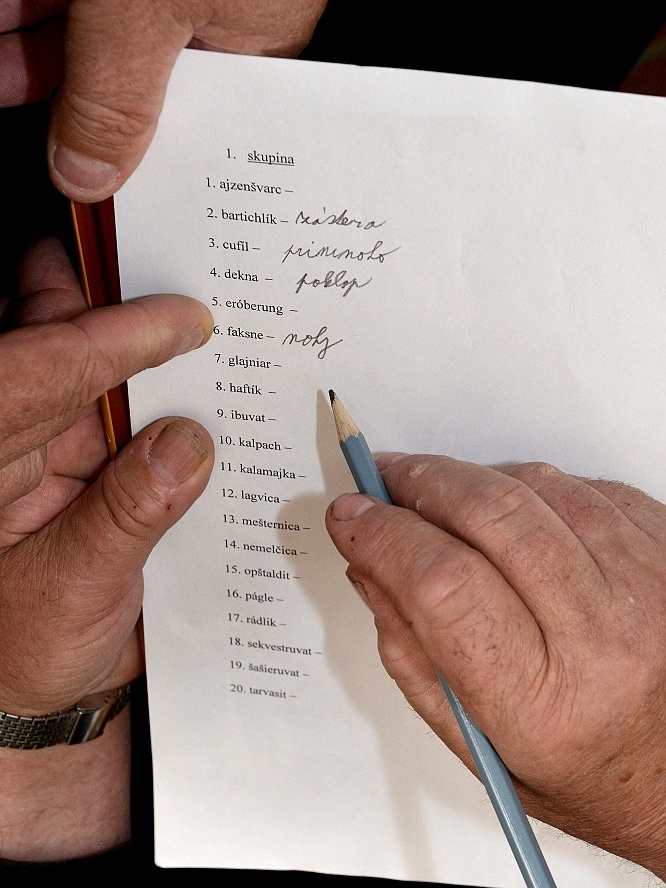 1. skupina
1. ajzenšvarc –
2. bartichlík – zástera
3. cufíl – prininoho
4. dekna – poklop
5. eróberung –
6. faksne – nohy
7. glajniar –
8. haftík –
9. ibuvat –
10. kalpach –
11. kalamajka –
12. lagvica –
13. mešternica –
14. nemelčica –
15. opštaldit –
16. págle –
17. rádlik –
18. sekvestruvat –
19. šašieruvat –
20. tarvasit –